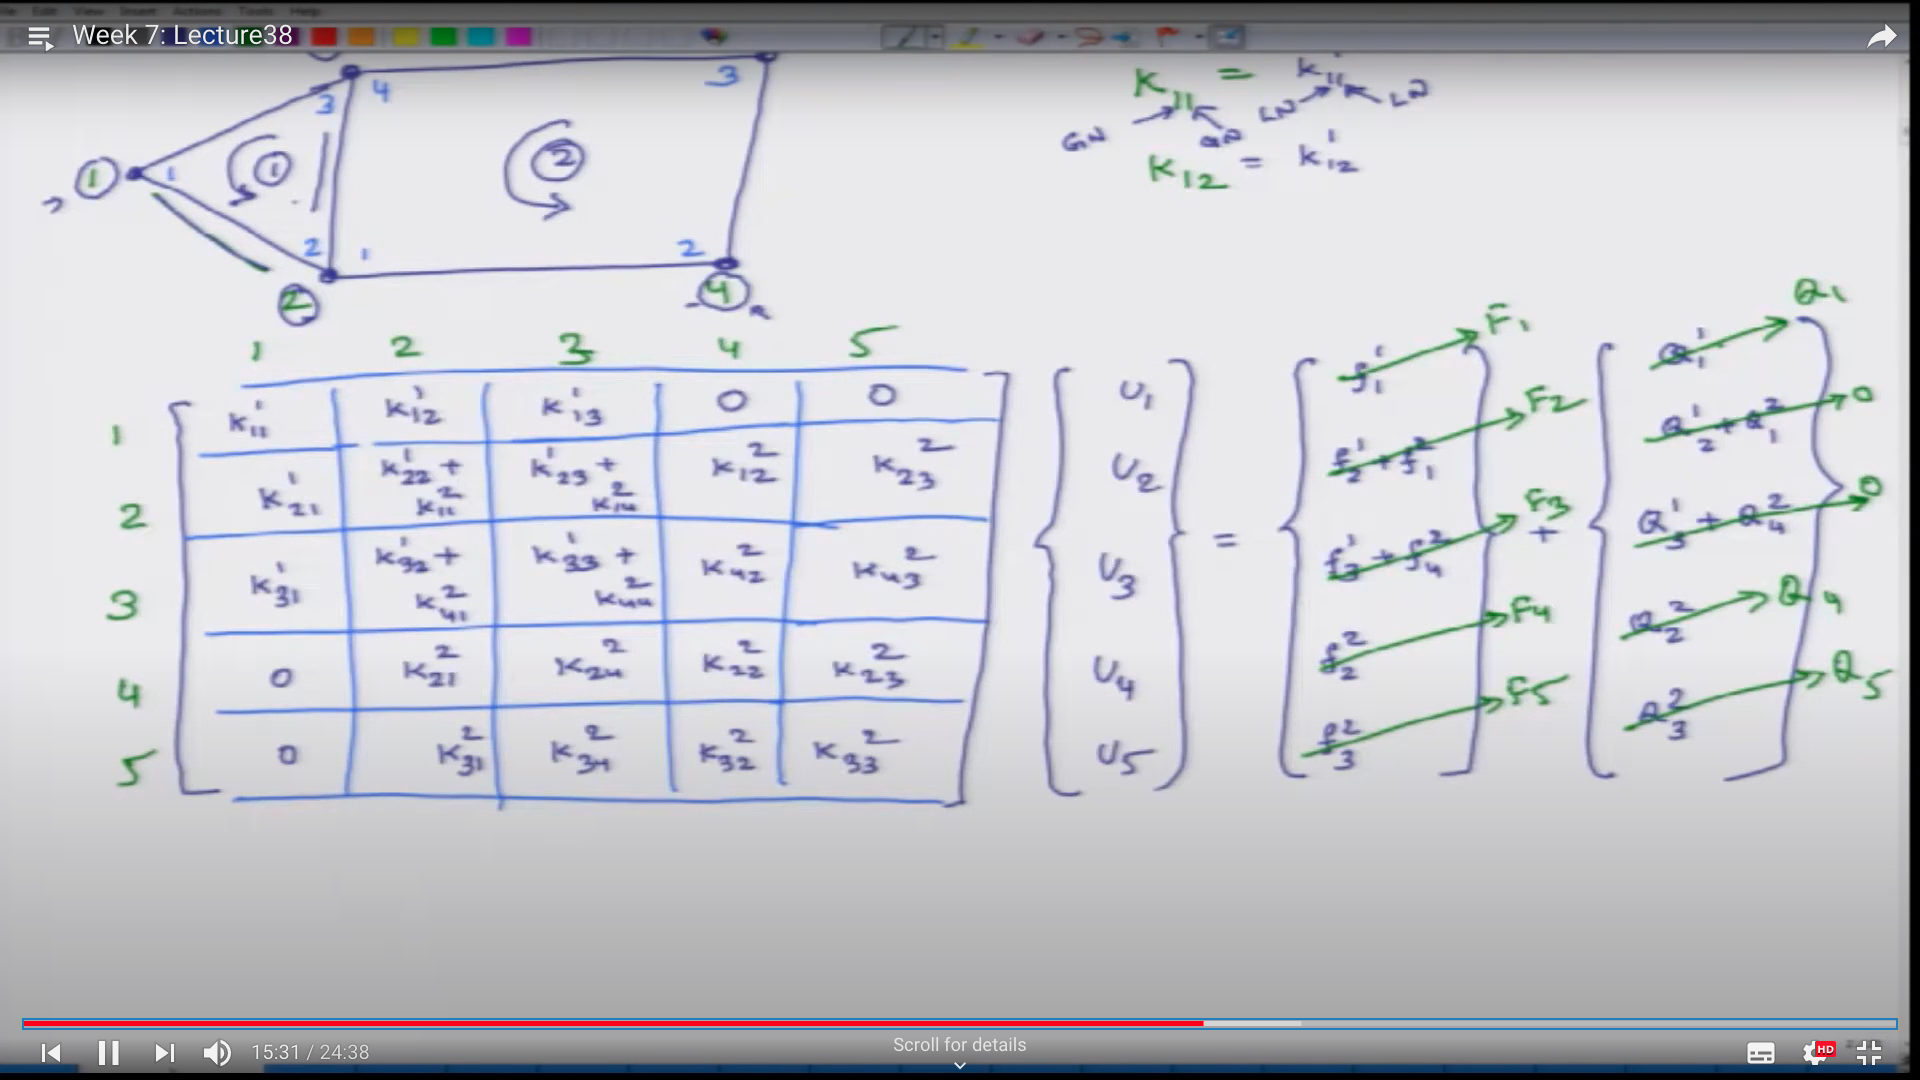 File Edit View Insert Actions Tools Help
Week 7: Lecture38
3 4 3
K₁₁ = k₁₁¹
GN GN LN LN
K₁₂ = k₁₂¹
1 1 1 2
2 1 2
2 4
1 2 3 4 5
1 k₁₁¹ k₁₂¹ k₁₃¹ 0 0
2 k₂₁¹ k₂₂¹ + k₁₁² k₂₃¹ + k₁₄² k₁₂² k₂₃²
3 k₃₁¹ k₃₂¹ + k₄₁² k₃₃¹ + k₄₄² k₄₂² k₄₃²
4 0 k₂₁² k₂₄² k₂₂² k₂₃²
5 0 k₃₁² k₃₄² k₃₂² k₃₃²
U₁
U₂
U₃
U₄
U₅
=
f₁¹ F₁
f₂¹ + f₁² F₂
f₃¹ + f₄² F₃
f₂² F₄
f₃² F₅
+
Q₁¹ Q₁
Q₂¹ + Q₁² 0
Q₃¹ + Q₄² 0
Q₂² Q₄
Q₃² Q₅
15:31 / 24:38
Scroll for details
HD